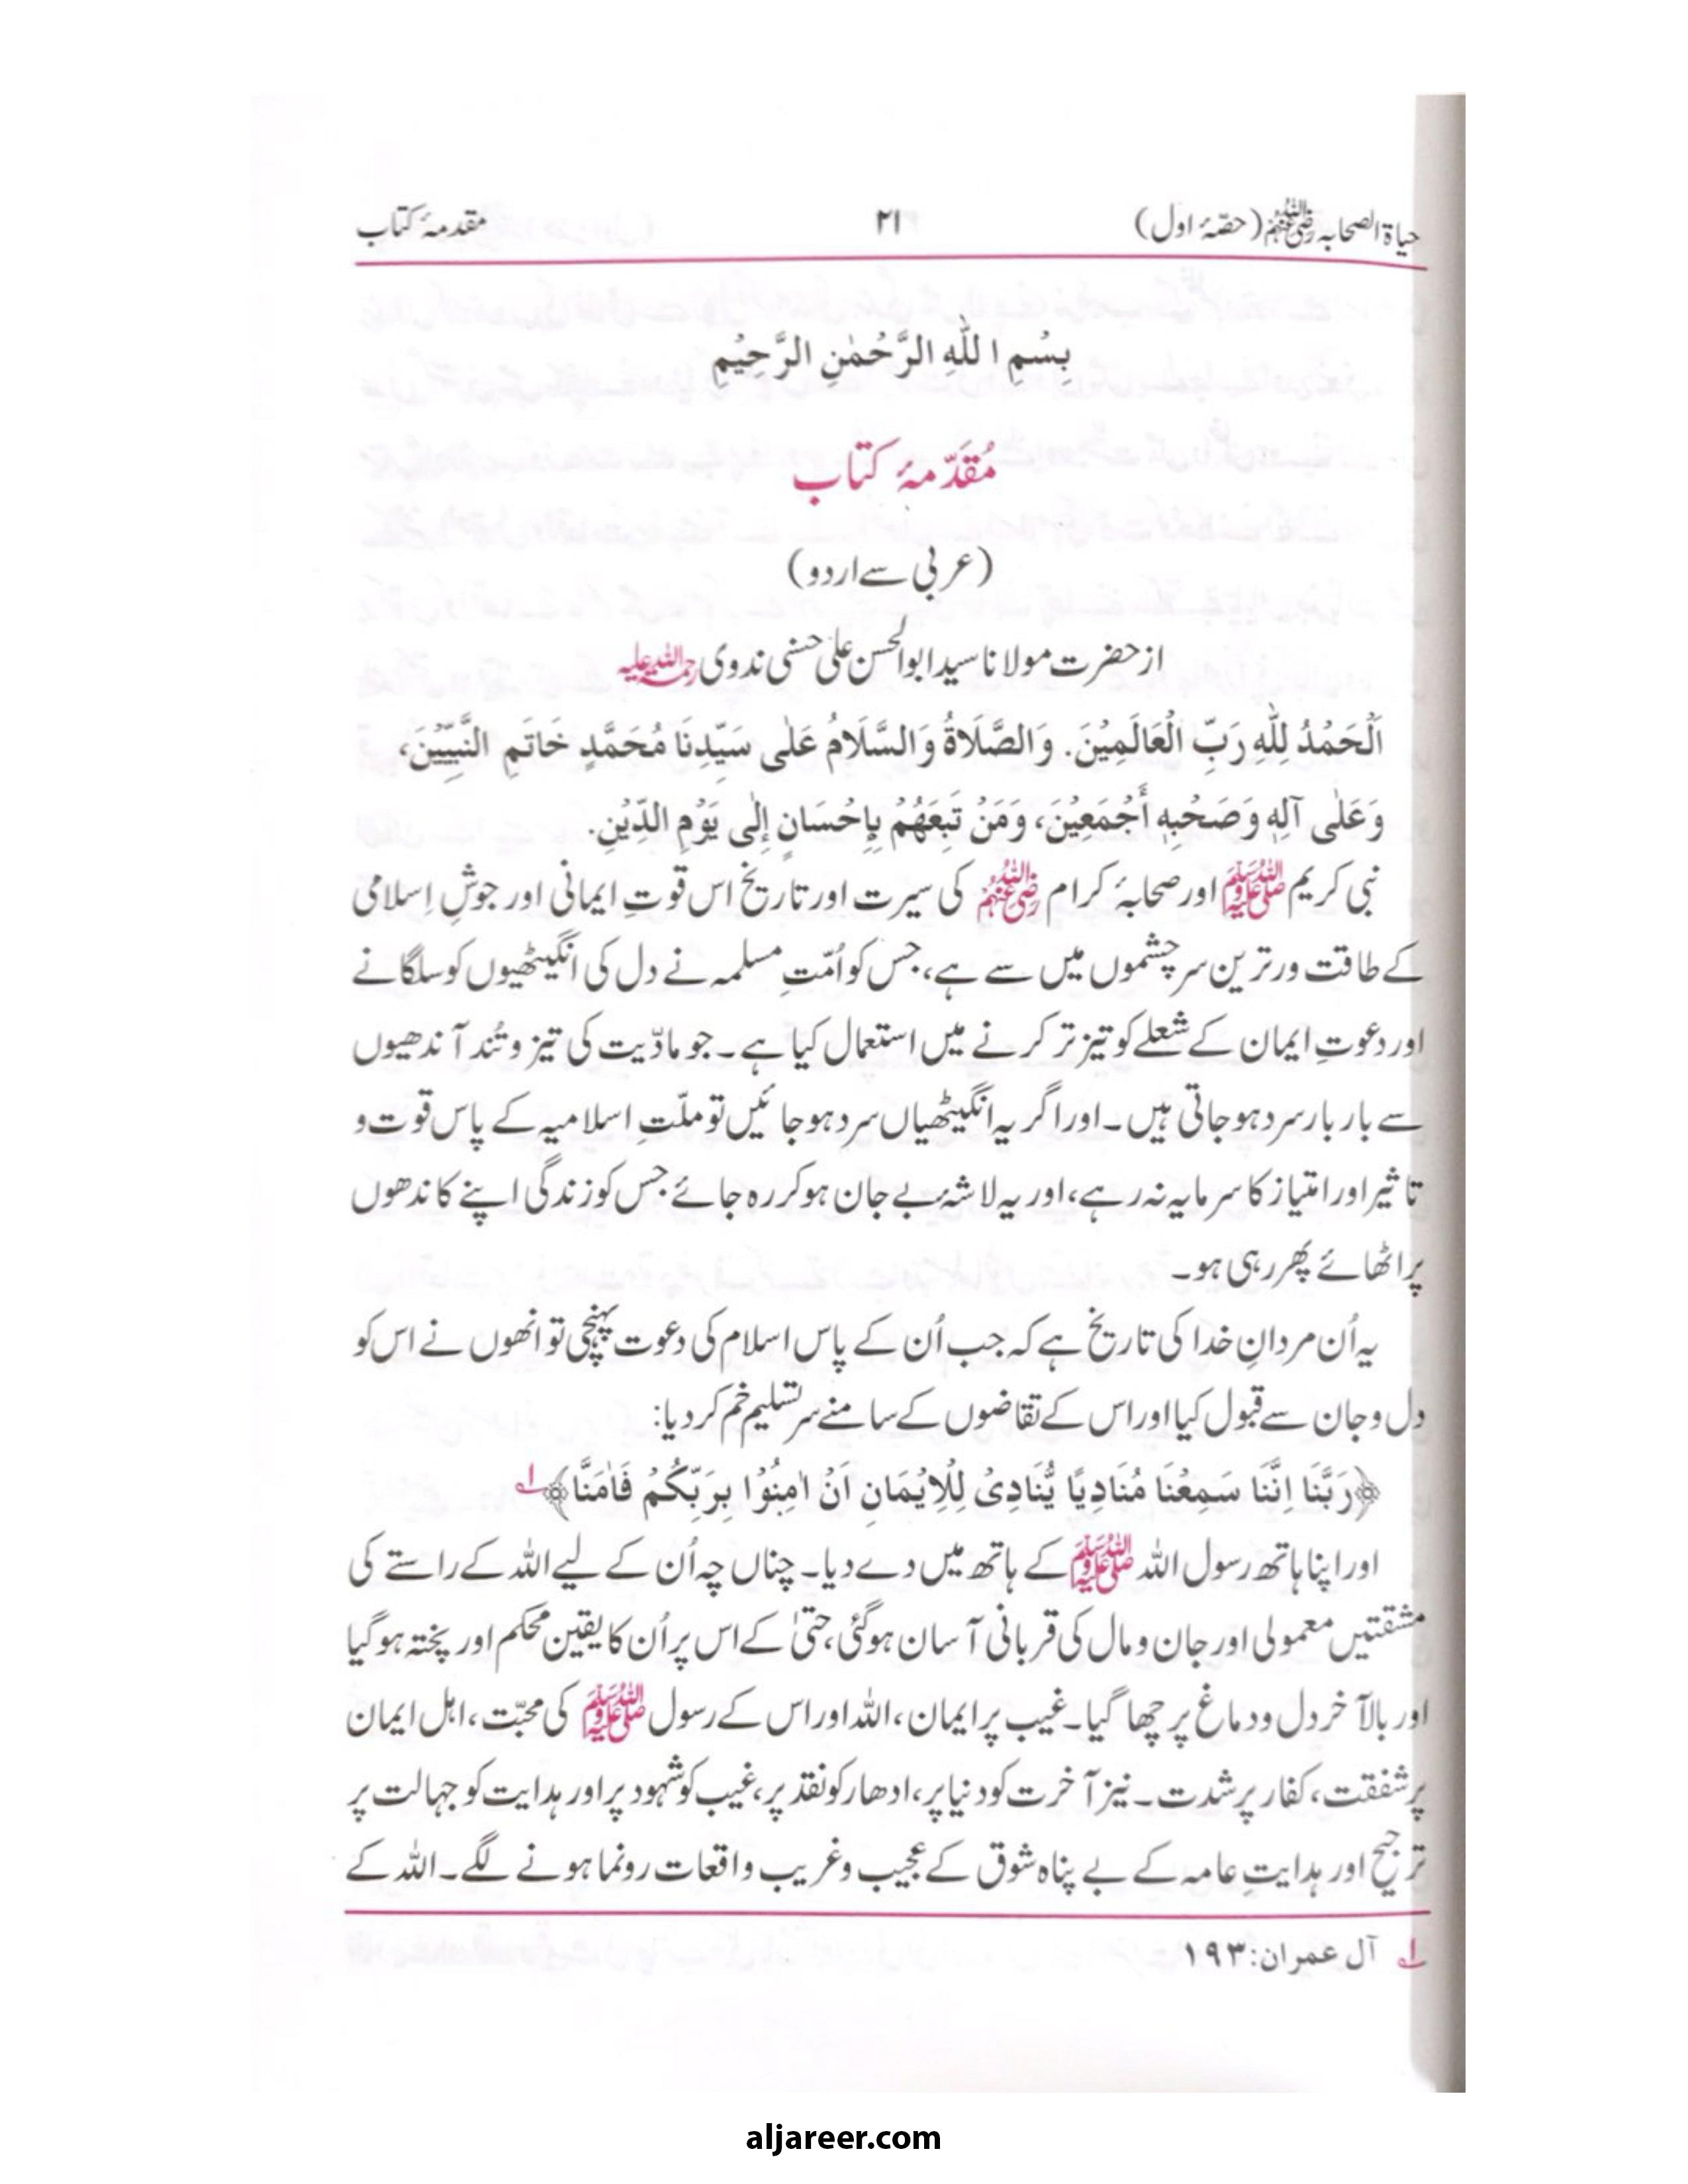 حیاۃ الصحابہ رضی اللہ عنہم (حصّۂ اول) ۲۱ مقدمۂ کتاب
بِسْمِ اللّٰهِ الرَّحْمٰنِ الرَّحِيْمِ
مُقَدّمۂ کتاب
(عربی سے اردو)
از حضرت مولانا سید ابوالحسن علی حسنی ندوی رحمۃ اللہ علیہ
اَلْحَمْدُ لِلّٰهِ رَبِّ الْعَالَمِيْنَ. وَالصَّلَاةُ وَالسَّلَامُ عَلٰى سَيِّدِنَا مُحَمَّدٍ خَاتَمِ النَّبِيِّيْنَ،
وَعَلٰى آلِهٖ وَصَحْبِهٖ أَجْمَعِيْنَ، وَمَنْ تَبِعَهُمْ بِإِحْسَانٍ إِلٰى يَوْمِ الدِّيْنِ.
نبی کریم ﷺ اور صحابۂ کرام رضی اللہ عنہم کی سیرت اور تاریخ اس قوتِ ایمانی اور جوشِ اِسلامی
کے طاقت ور ترین سرچشموں میں سے ہے، جس کو اُمّتِ مسلمہ نے دل کی انگیٹھیوں کو سلگانے
اور دعوتِ ایمان کے شعلے کو تیز تر کرنے میں استعمال کیا ہے۔ جو مادّیت کی تیز و تُند آندھیوں
سے بار بار سرد ہوجاتی ہیں۔ اور اگر یہ انگیٹھیاں سرد ہو جائیں تو ملّتِ اسلامیہ کے پاس قوت و
تاثیر اور امتیاز کا سرمایہ نہ رہے، اور یہ لاشۂ بے جان ہوکر رہ جائے جس کو زندگی اپنے کاندھوں
پر اٹھائے پھر رہی ہو۔
یہ اُن مردانِ خدا کی تاریخ ہے کہ جب اُن کے پاس اسلام کی دعوت پہنچی تو انھوں نے اس کو
دل و جان سے قبول کیا اور اس کے تقاضوں کے سامنے سرِتسلیم خم کر دیا:
﴿رَبَّنَا اِنَّنَا سَمِعْنَا مُنَادِيًا يُّنَادِىْ لِلْاِيْمَانِ اَنْ اٰمِنُوْا بِرَبِّكُمْ فَاٰمَنَّا﴾ ۱
اور اپنا ہاتھ رسول اللہ ﷺ کے ہاتھ میں دے دیا۔ چناں چہ اُن کے لیے اللہ کے راستے کی
مشقتیں معمولی اور جان و مال کی قربانی آسان ہوگئی، حتیٰ کے اس پر اُن کا یقین محکم اور پختہ ہو گیا
اور بالآخر دل و دماغ پر چھا گیا۔ غیب پر ایمان، اللہ اور اس کے رسول ﷺ کی محبّت، اہل ایمان
پر شفقت، کفار پر شدت۔ نیز آخرت کو دنیا پر، ادھار کو نقد پر، غیب کو شہود پر اور ہدایت کو جہالت پر
ترجیح اور ہدایتِ عامہ کے بے پناہ شوق کے عجیب و غریب واقعات رونما ہونے لگے۔ اللہ کے
۱ آل عمران: ۱۹۳
aljareer.com